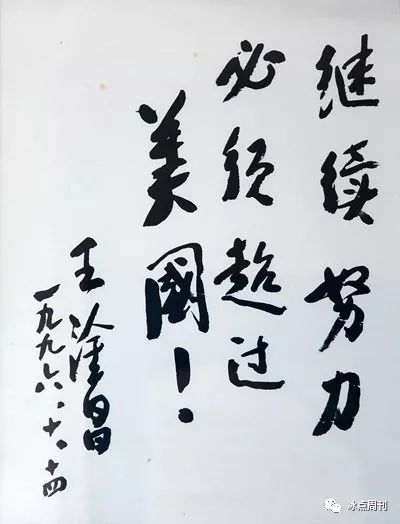 继续努力
必须超过
美國！
王淦昌
一九九六.十.十四
冰点周刊